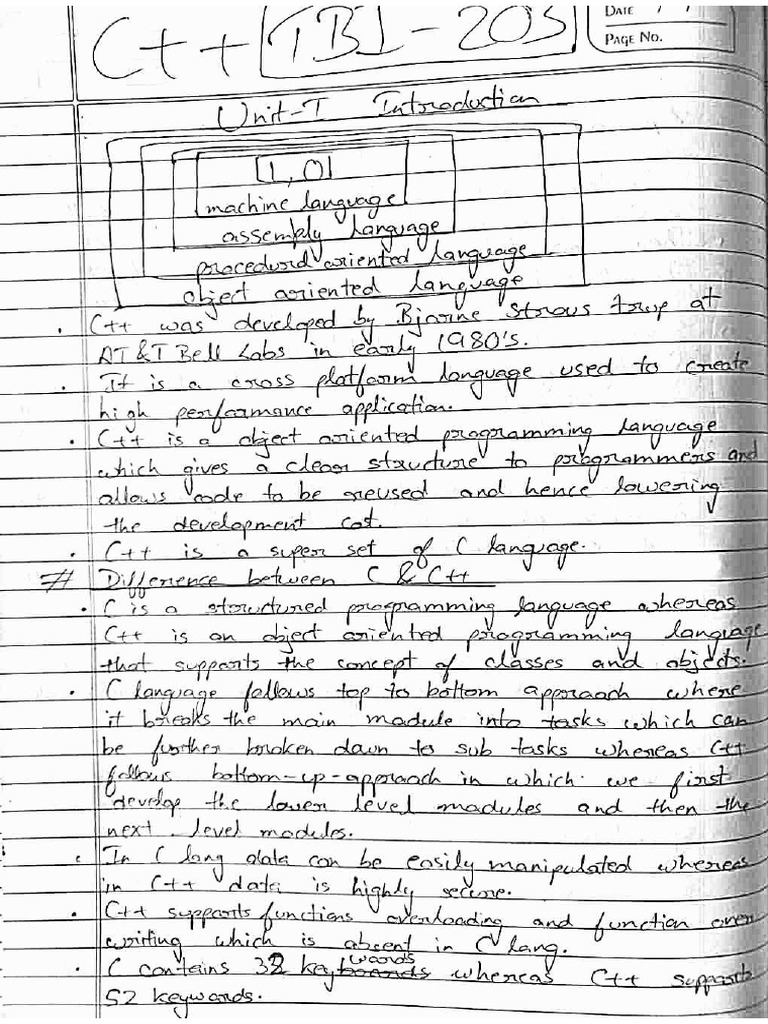 DATE / /
PAGE NO.
C++ TBI-205
Unit-I Introduction
[1,0]
machine language
assemply language
procedural oriented language
object oriented language
. C++ was developed by Bjarne Strous trup at
AT&T Bell Labs in early 1980's.
. It is a cross platform language used to create
high performance application.
. C++ is a object oriented programming language
which gives a clear structure to programmers and
allows code to be reused and hence lowering
the development cost.
. C++ is a super set of C language.
# Difference between C & C++
. C is a structured programming language whereas
C++ is an object oriented programming language
that supports the concept of classes and objects.
. C language follows top to bottom approach where
it breaks the main module into tasks which can
be further broken down to sub tasks whereas C++
follows bottom-up-approach in which we first
develop the lower level modules and then the
next level modules.
. In C lang data can be easily manipulated whereas
in C++ data is highly secure.
. C++ supports functions overloading and function over
writing which is absent in C lang.
. C contains 32 keywords whereas C++ supports
52 keywords.